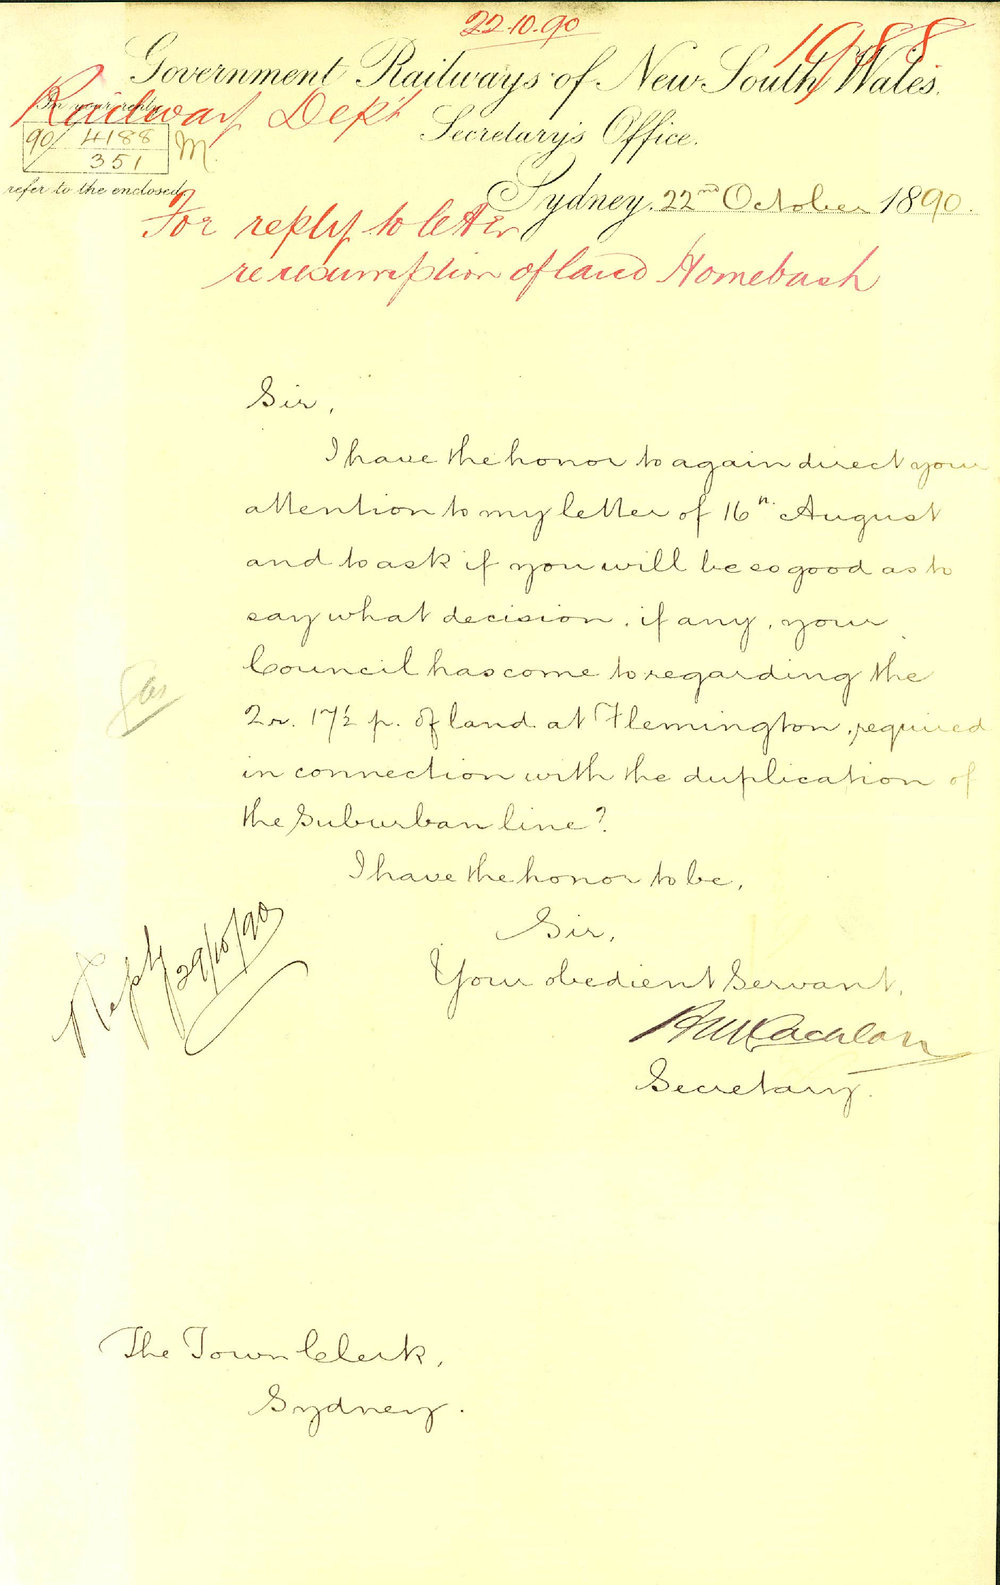 22.10.90
1988
Government Railways of New South Wales.
Railway Dep't
Secretary's Office.
In your reply
90/ 4188 M.
351
refer to the enclosed
Sydney, 22nd October 1890.
For reply to letter
re resumption of land Homebush
Sir,
I have the honor to again direct your
attention to my letter of 16th August
and to ask if you will be so good as to
say what decision, if any, your
Council has come to regarding the
2r. 17½ p. of land at Flemington, required
in connection with the duplication of
the Suburban line?
I have the honor to be,
Sir,
Your obedient Servant,
H McLachlan
Secretary.
Reply 29/10/90
The Town Clerk,
Sydney.